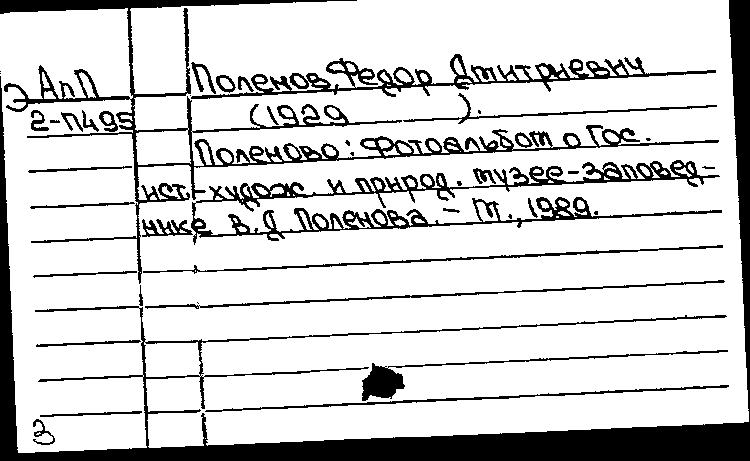 Э АпП
2-П495
Поленов, Федор Дмитриевич
(1929 ).
Поленово: Фотоальбом о Гос.
ист.-худож. и природ. музее-заповед-
нике В.Д. Поленова. - М., 1989.
З